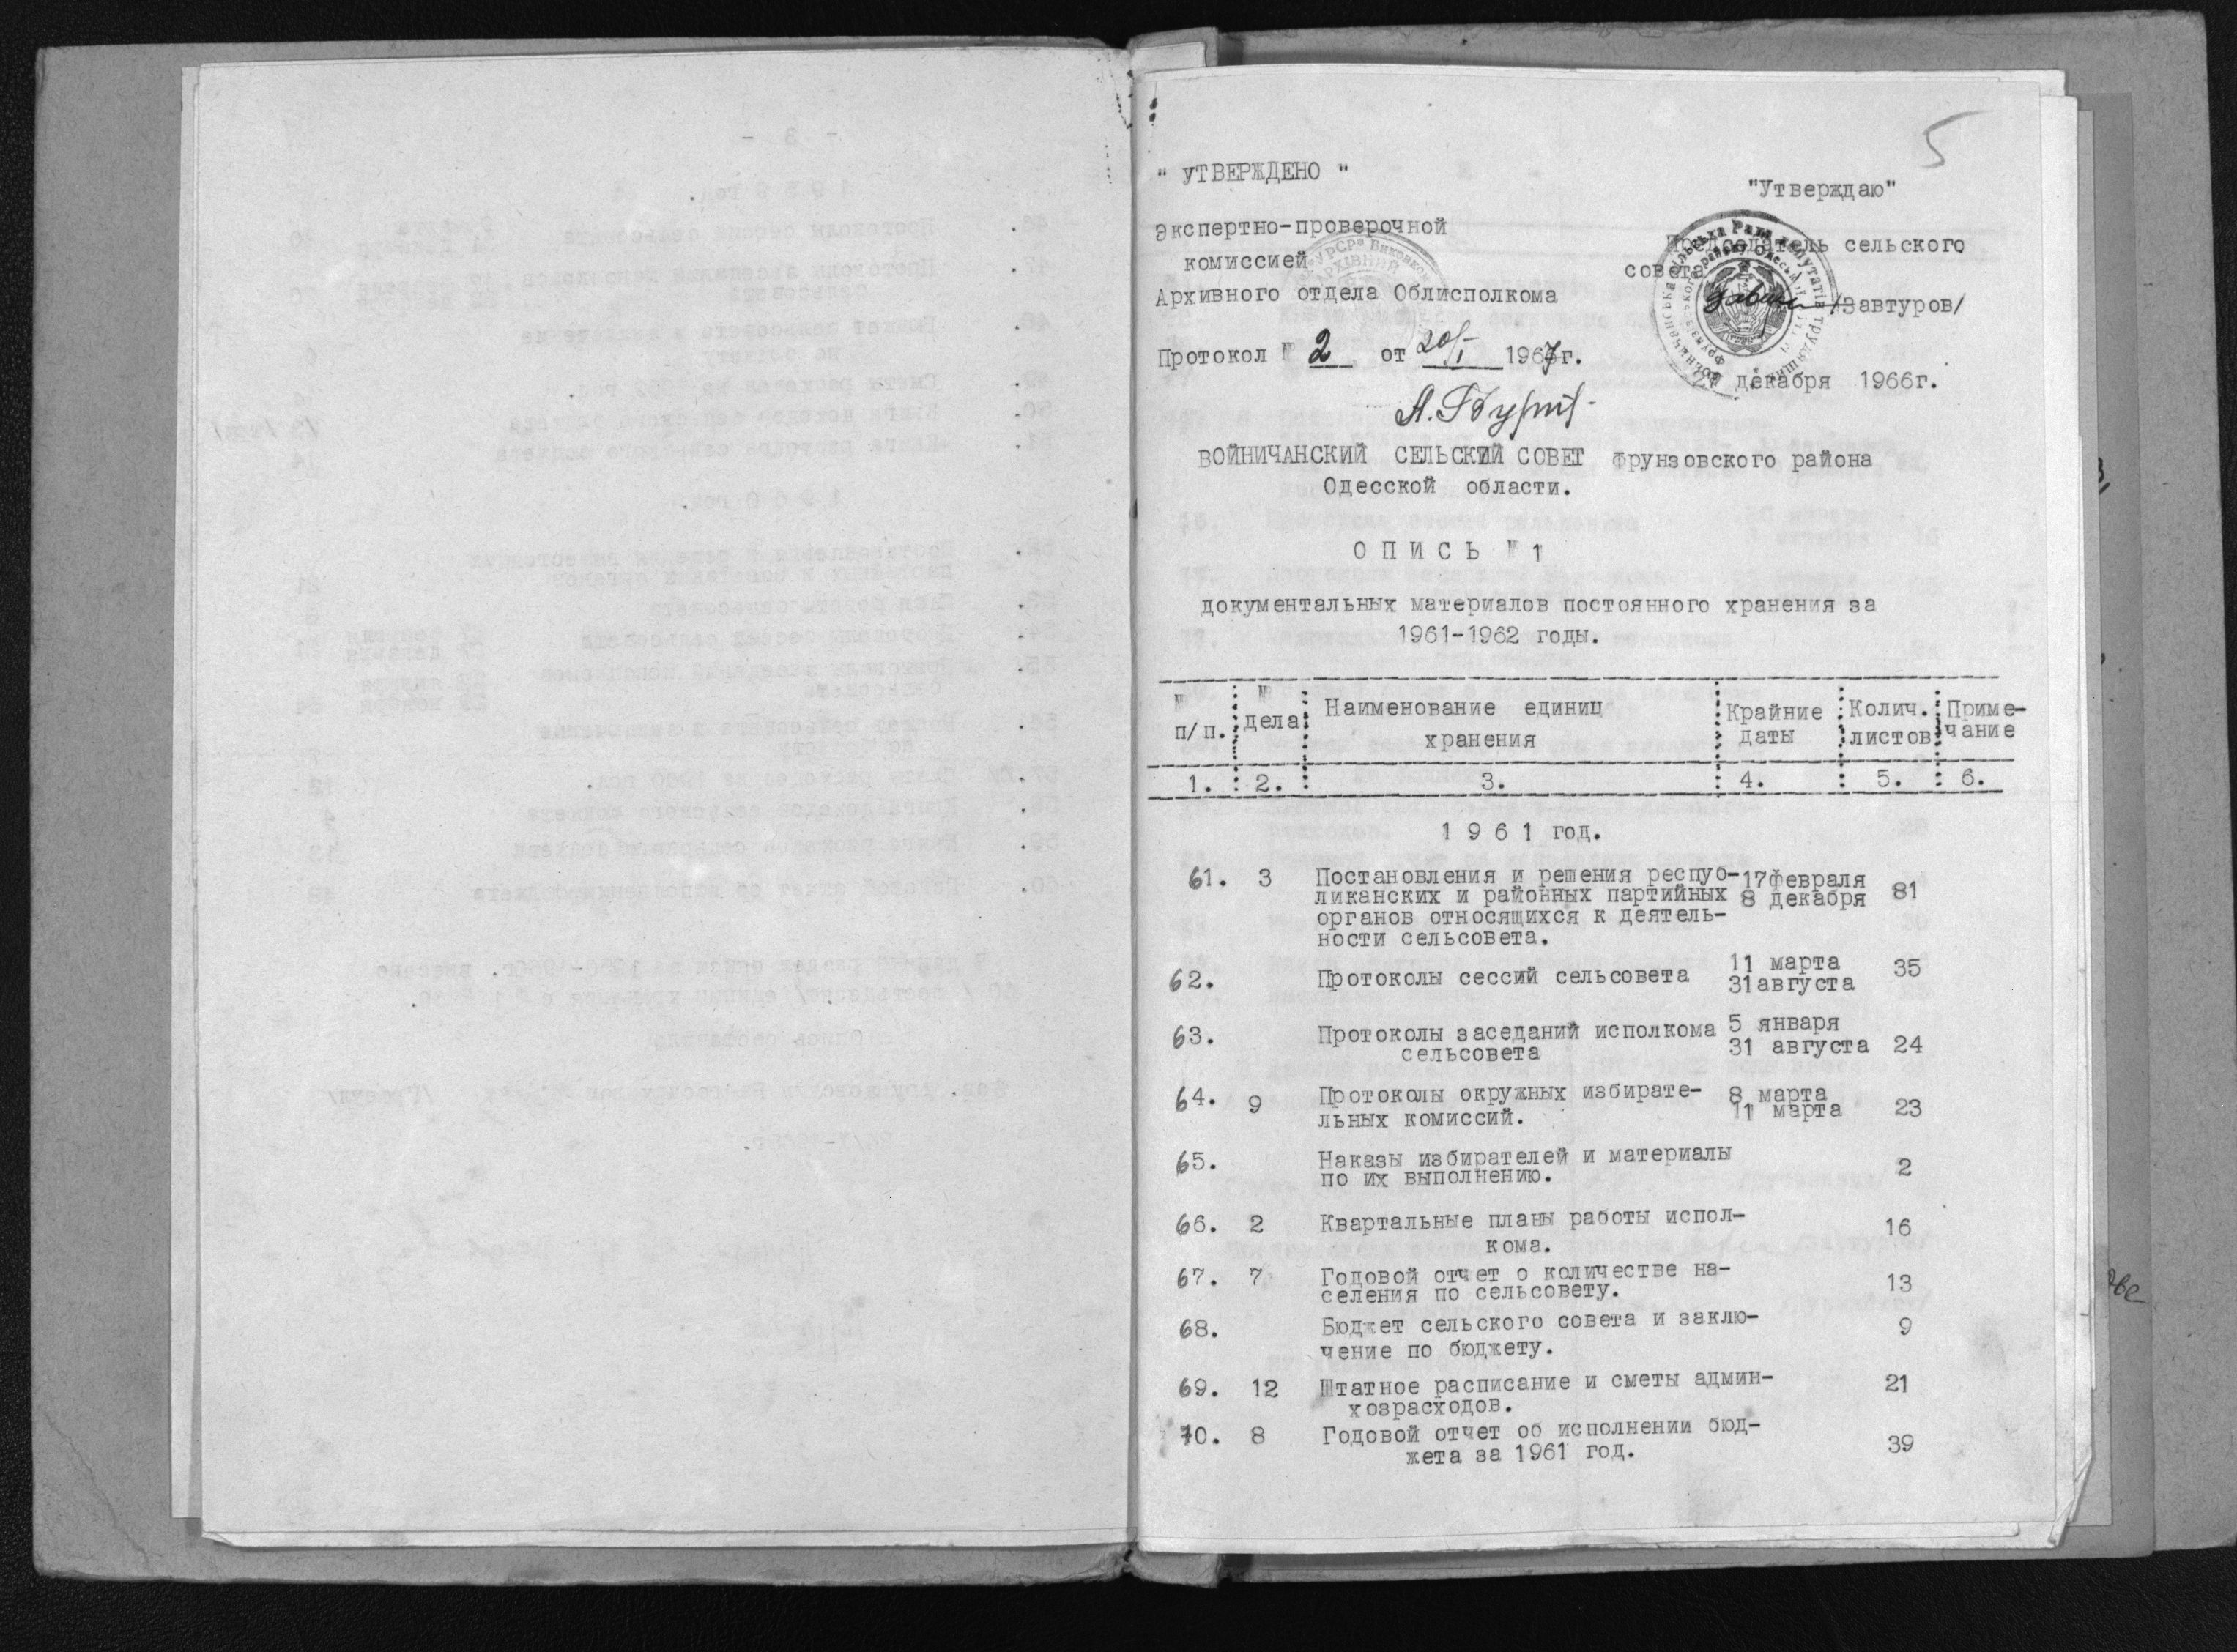 5
" УТВЕРЖДЕНО "
"Утверждаю"
Экспертно-проверочной
комиссией
Архивного отдела Облисполкома
Председатель сельского
совета /Завтуров/
Протокол № 2 от 20/I 1967г.
27 декабря 1966г.
ВОЙНИЧАНСКИЙ СЕЛЬСКИЙ СОВЕТ Фрунзовского района
Одесской области.
О П И С Ь № 1
документальных материалов постоянного хранения за
1961-1962 годы.
№ п/п. : № дела : Наименование единиц хранения : Крайние даты : Колич. листов : Приме-чание
1. : 2. : 3. : 4. : 5. : 6.
1 9 6 1 год.
61. 3 Постановления и решения респуб- 17февраля
ликанских и районных партийных 8 декабря 81
органов относящихся к деятель-
ности сельсовета.
62. Протоколы сессий сельсовета 11 марта 35
31августа
63. Протоколы заседаний исполкома 5 января
сельсовета 31 августа 24
64. 9 Протоколы окружных избирате- 8 марта
льных комиссий. 11 марта 23
65. Наказы избирателей и материалы
по их выполнению. 2
66. 2 Квартальные планы работы испол- 16
кома.
67. 7 Годовой отчет о количестве на-
селения по сельсовету. 13
68. Бюджет сельского совета и заклю- 9
чение по бюджету.
69. 12 Штатное расписание и сметы админ- 21
хозрасходов.
70. 8 Годовой отчет об исполнении бюд-
жета за 1961 год. 39